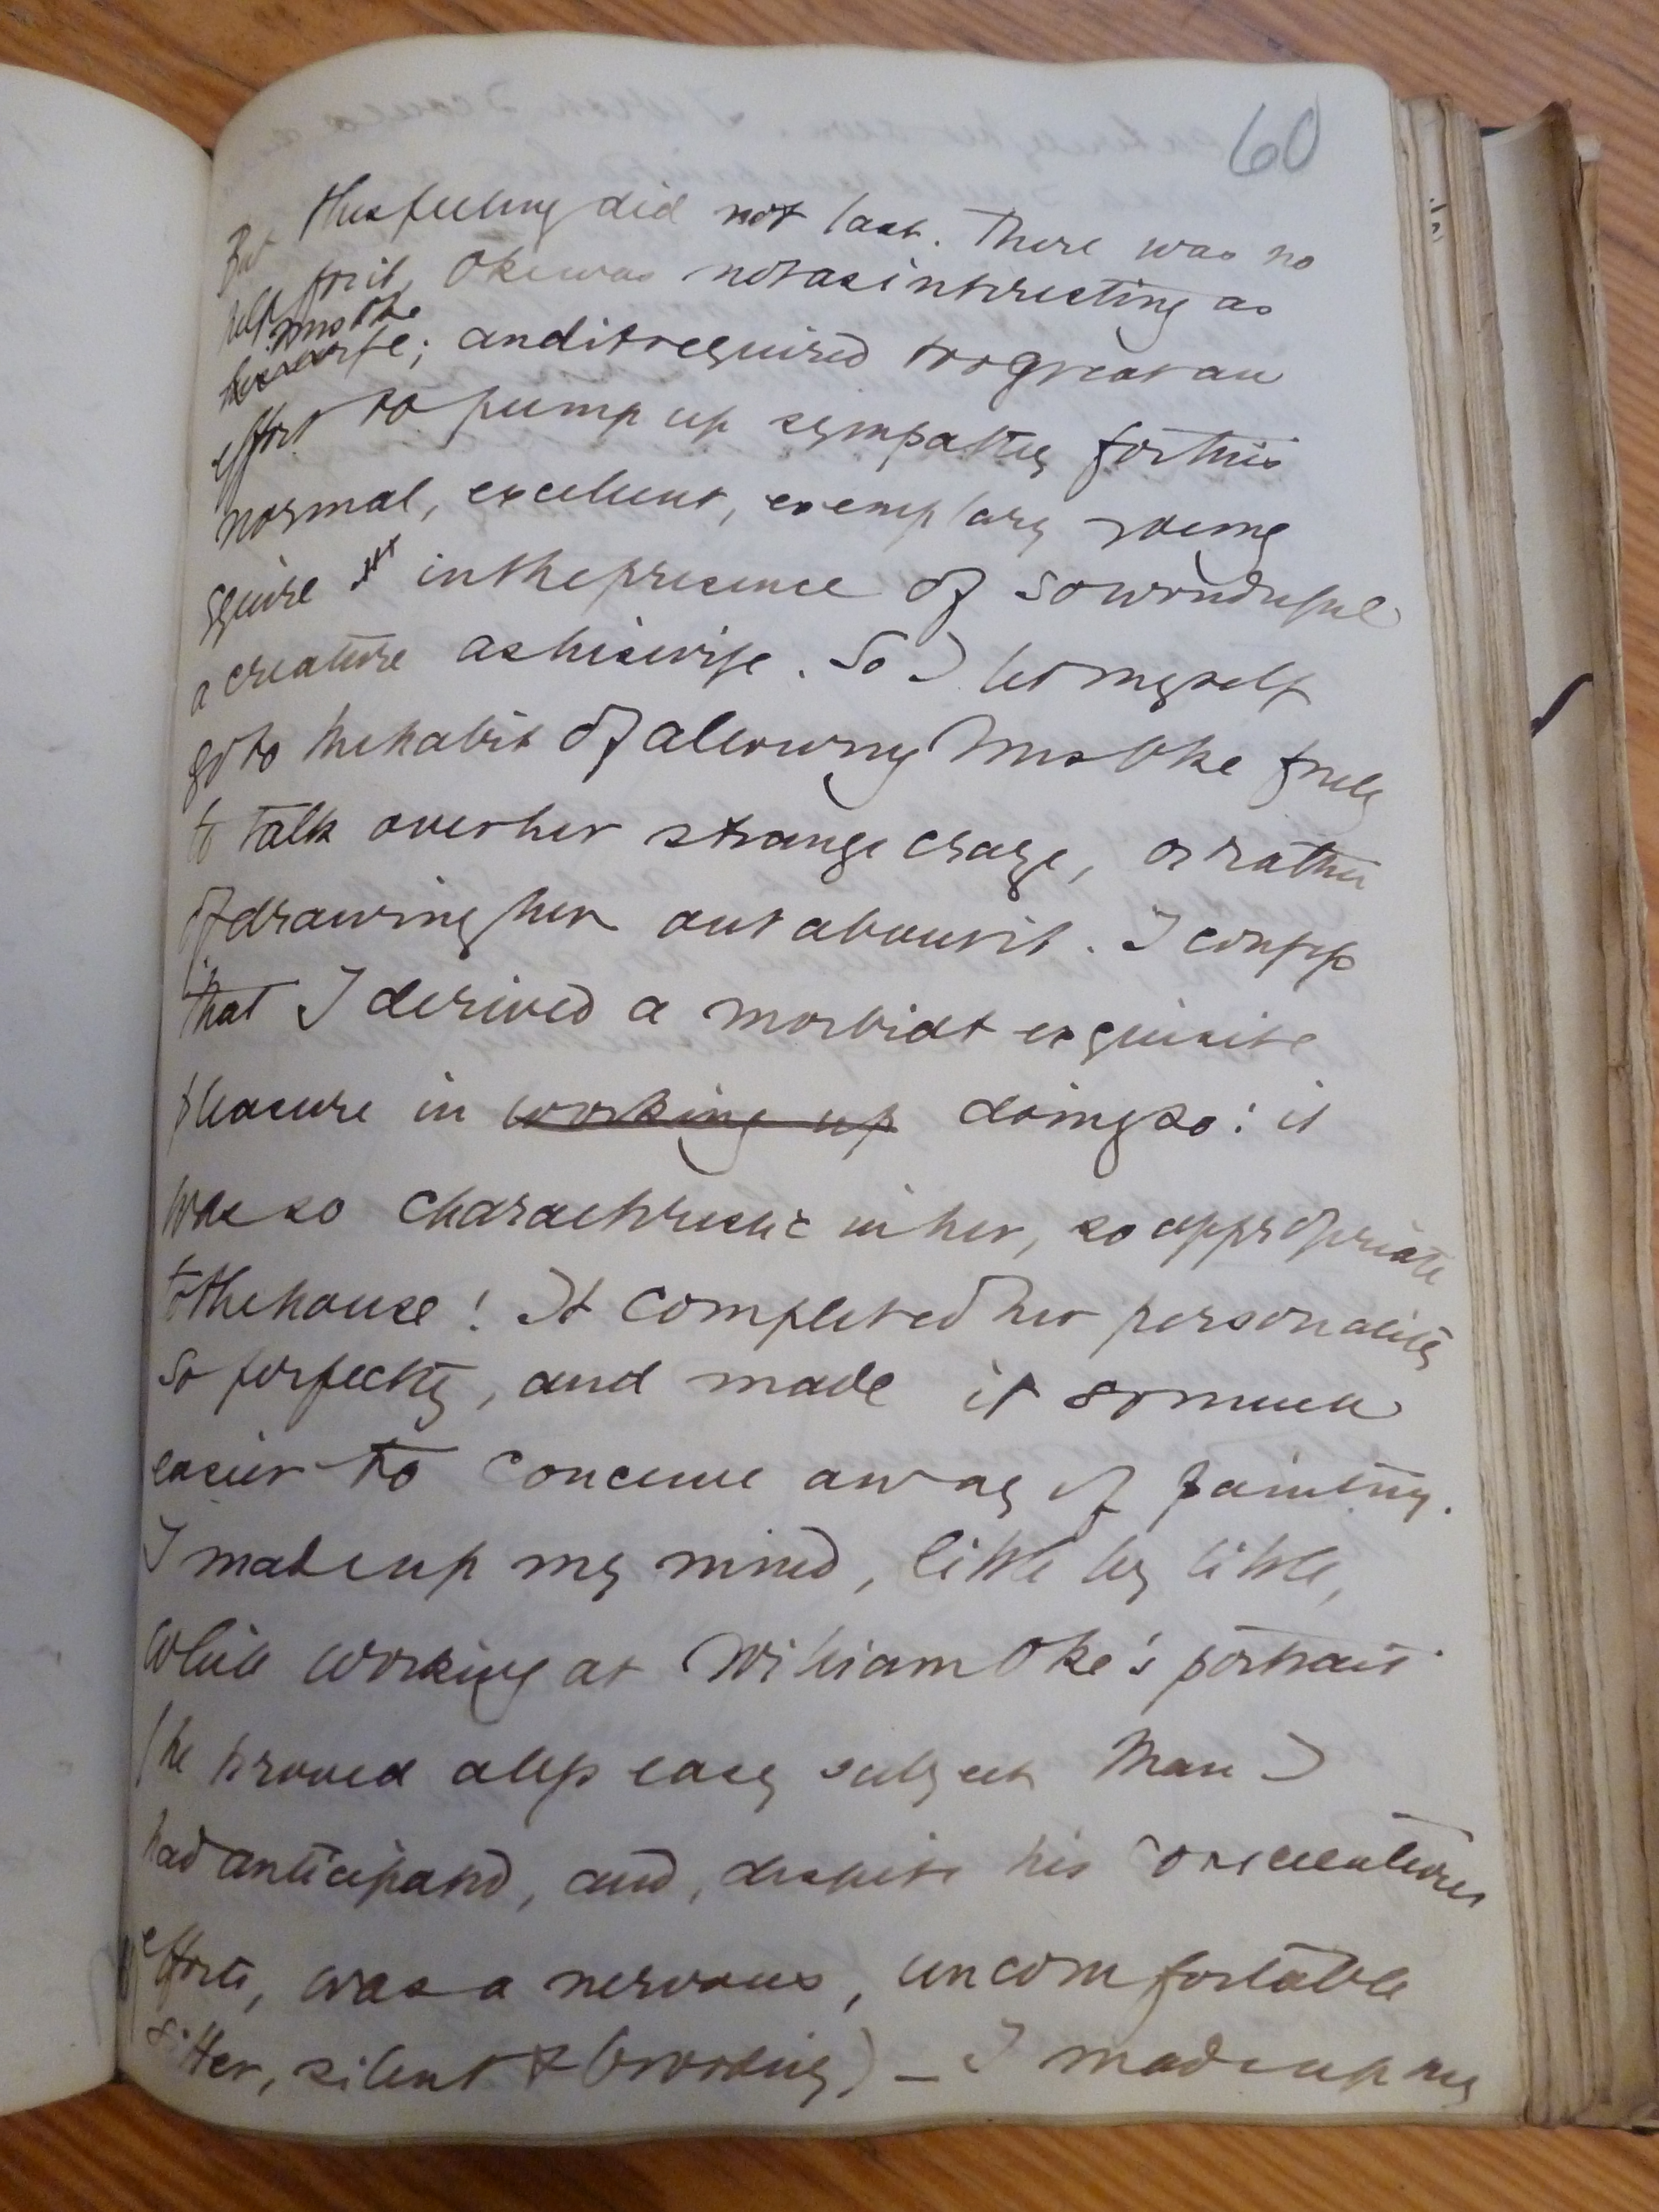 60
But this feeling did not last. There was no
help for it, Oke was not as interesting as
Mrs Oke
his wife; and it required too great an
effort to pump up sympathy for this
normal, excellent, exemplary young
squire in the presence of so wonderful
a creature as his wife. So I let myself
go to the habit of allowing Mrs Oke freely
to talk over her strange craze, or rather
of drawing her out about it. I confess
that I derived a morbid & exquisite
pleasure in working up doing so: it
was so characteristic in her, so appropriate
to the house! It completed her personality
so perfectly, and made it so much
easier to conceive a way of painting.
I made up my mind, little by little,
while working at William Oke's portrait
(he proved a less easy subject than I
had anticipated, and, despite his conscientious
efforts, was a nervous, uncomfortable
sitter, silent & brooding) – I made up my